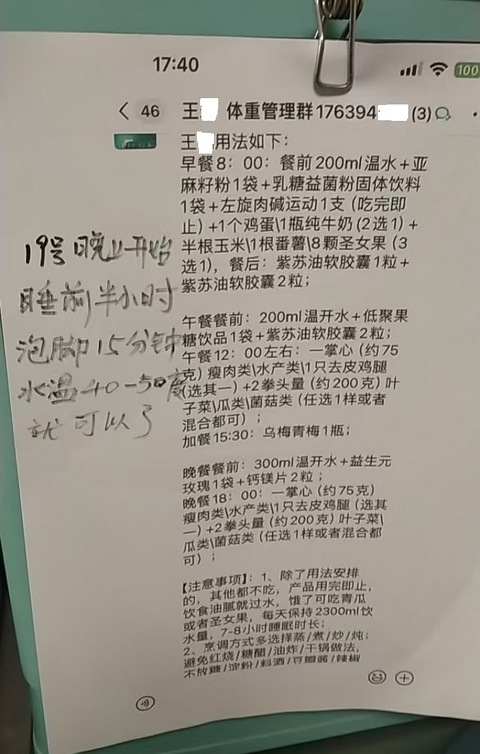 17:40
100
46
王 体重管理群176394 (3)
王 用法如下：
早餐8：00：餐前200ml温水+亚
麻籽粉1袋+乳糖益菌粉固体饮料
1袋+左旋肉碱运动1支（吃完即
止）+1个鸡蛋\1瓶纯牛奶(2选1)+
半根玉米\1根番薯/8颗圣女果（3
选1），餐后：紫苏油软胶囊1粒+
紫苏油软胶囊2粒；
午餐餐前：200ml温开水+低聚果
糖饮品1袋+紫苏油软胶囊2粒；
午餐12：00左右：一掌心（约75
克）瘦肉类\水产类\1只去皮鸡腿
(选其一)+2拳头量(约200克)叶
子菜\瓜类\菌菇类（任选1样或者
混合都可）；
加餐15:30：乌梅青梅1瓶；
晚餐餐前：300ml温开水+益生元
玫瑰1袋+钙镁片2粒；
晚餐18：00：一掌心（约75克）
瘦肉类\水产类\1只去皮鸡腿（选其
一）+2拳头量（约200克）叶子菜\
瓜类\菌菇类（任选1样或者混合都
可）；
【注意事项】：1、除了用法安排
的，其他都不吃，产品用完即止，
饮食油腻就过水，饿了可吃青瓜
或者圣女果，每天保持2300ml饮
水量，7-8小时睡眠时长；
2、烹调方式多选择蒸/煮/炒/炖；
避免红烧/糖醋/油炸/干锅做法，
不放糖/淀粉/料酒/豆瓣酱/辣椒
19号晚上开始
睡前半小时
泡脚15分钟
水温40-50度
就可以了